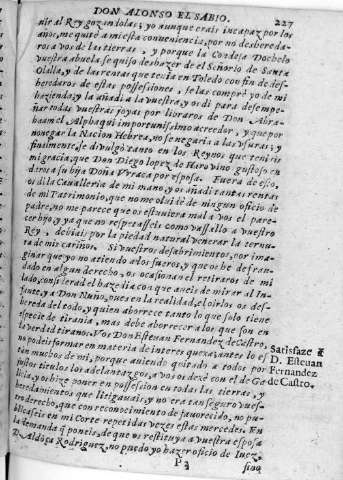 DON ALONSO EL SABIO.
227
uir al Rey guzmiolas; yo aunque crais incapaz por los
años, me quité a mi esta conueniencia, por no deshereda-
ros a vos de las tierras, y porque la Condesa
vuestra abuela se quiso deshazer de el Señorio de Santa
Olalla, y de las rentas que tenia en Toledo con fin de des-
heredaros de estas possessiones, se las compré yo de mi
hazienda, y la añadi a la vuestra, y os di para desempe-
ñar todas vuestras joyas por libraros de Don Abra-
haam el Alphaqui importunissimo acreedor, y que por
negar la Nacion Hebrea, no se negaria a las vsuras; y
finalmente, se divulgò tanto en los Reynos que teniris
mi gracia, que Don Diego lopez de Haro vino gustoso en
daros a su hija Doña Vrraca por esposa. Fuera de esto,
os di la Caualleria de mi mano, y os añadi tantas rentas
de mi Patrimonio, que no me oluidé de ningun oficio de
padre, no me parece que os estuuiera mal a vos el pare-
cer hijo, y ya que no respetasseis como vassallo a vuestro
Rey, deuiais por la piedad natural venerar la ternu-
ra de mis cariños. Si vuestros desabrimientos, por ima-
ginar que yo no atiendo a los fueros, y que os he defrau-
dado en algun derecho, os ocasionan el retiraros de mi
lado, considerad el haze dia con que aueis de mirar al In-
fante, y a Don Nuño, pues en la realidad, el oirlos os des-
hereda del todo, y quien aborrece tanto lo que solo tiene
especie de tirania, mas debe aborrecer a los que son en
la verdad tiranos. Vos Don Esteuan Fernandez de Castro,
no podeis formar en materia de interes quexa, antes lo es-
tan muchos de mi, porque auiendo quitado a todos por
justos titulos los adelantazgos, a vos os dexé con el de Ga-
licia, y os hize poner en possession en todas las tierras, y
heredamientos que litigauais, y no era tan seguro vues-
tro derecho, que con reconocimiento de fauorecido, no pu-
blicaseis en mi Corte repetidas vezes estas mercedes. En
la demanda q̃ poneis, de que os restituya a vuestra esposa
D. Aldõça Rodriguez, no puedo yo hazer oficio de Iuez,
Satisfaze à
D. Esteuan
Fernandez
de Castro.
P 3
sino